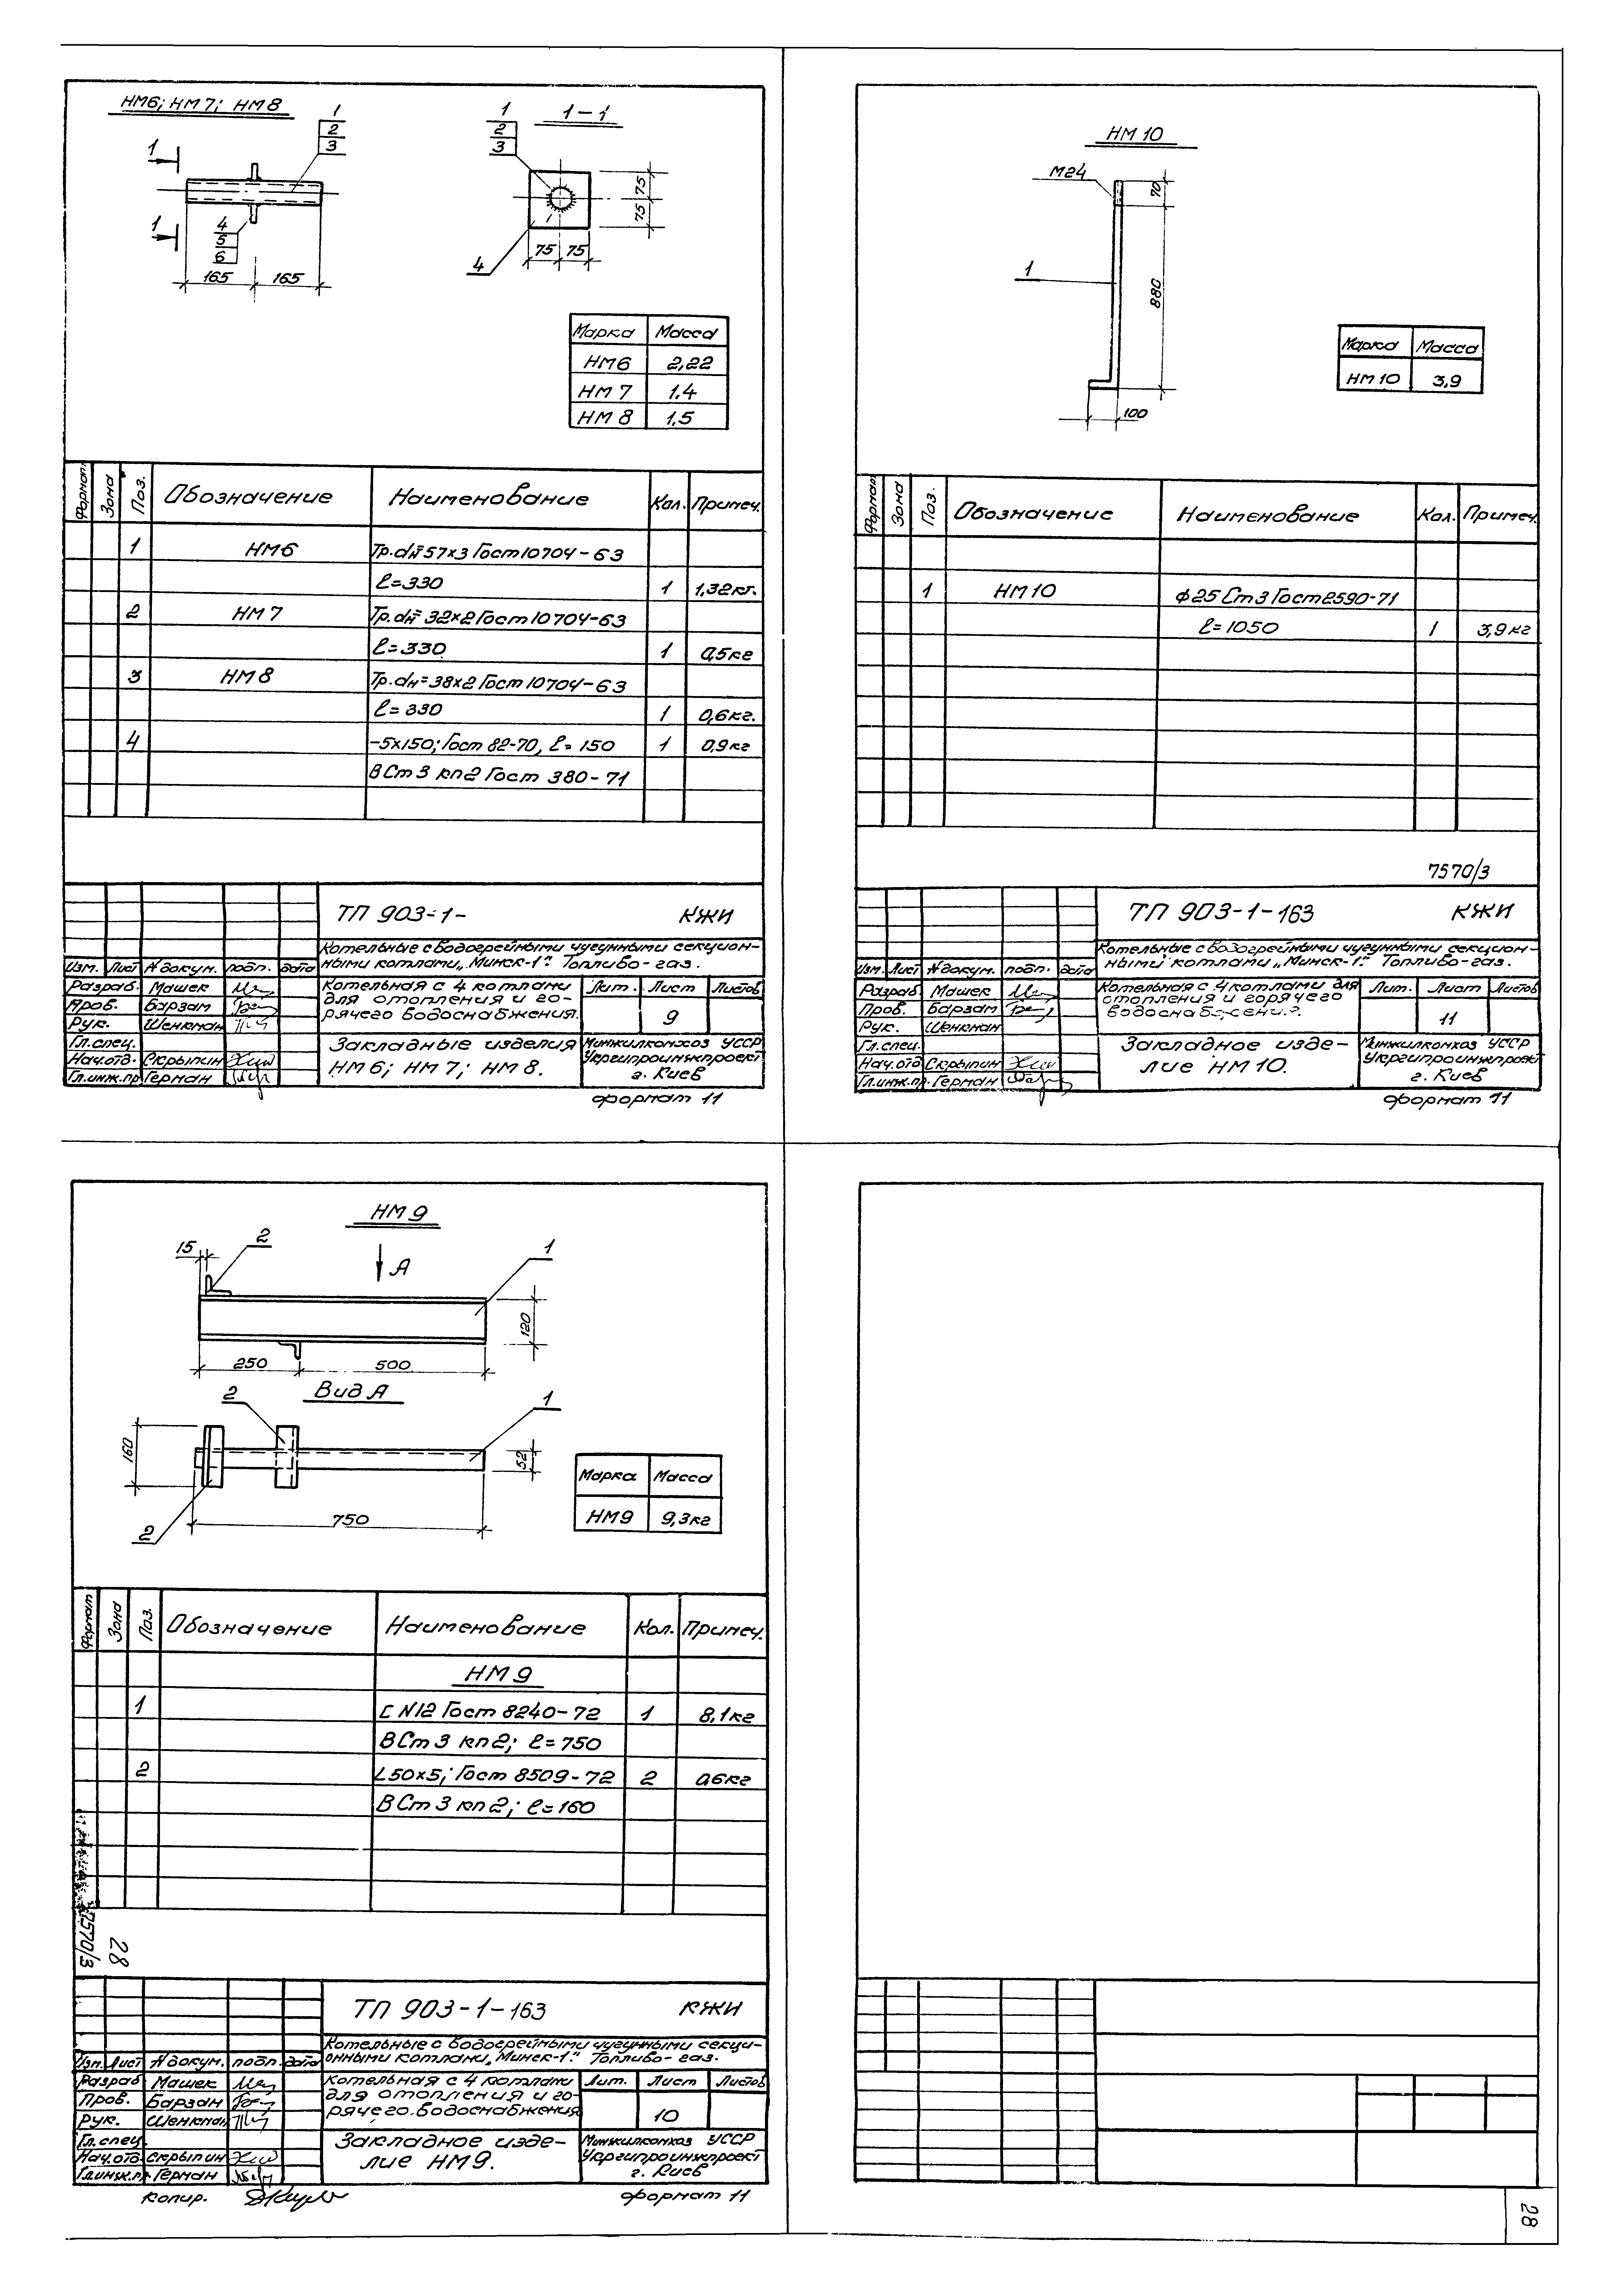 НМ6; НМ7; НМ8
1
2
3
1
1
4
5
6
165 165
1-1
1
2
3
4
75
75
75 75
Марка Масса
НМ6 2,22
НМ 7 1.4
НМ 8 1,5
Формат Зона Поз. Обозначение Наименование Кол. Примеч.
1 НМ6 Тр. dн=57x3 Гост 10704-63
ℓ=330 1 1,32кг.
2 НМ 7 Тр. dн=32x2 Гост 10704-63
ℓ=330 1 0,5кг
3 НМ 8 Тр. dн=38x2 Гост 10704-63
ℓ=330 1 0,6кг.
4 -5x150; Гост 82-70, ℓ=150 1 0,9кг
В Ст 3 кп2 Гост 380-71
ТП 903-1- КЖИ
Котельные с водогрейными чугунными секцион-
ными котлами „Минск-1". Топливо-газ.
Изм. Лист N докум. подп. дата
Разраб. Машек
Пров. Барзам
Рук. Шенкман
Гл.спец.
Нач.отд. Скрыпин
Гл.инж.пр. Герман
Котельная с 4 котлами
для отопления и го-
рячего водоснабжения.
Лит. Лист Листов
9
Закладные изделия
НМ 6; НМ 7; НМ 8.
Минжилкомхоз УССР
Укргипроинжпроект
г. Киев
формат 11
НМ 10
М24
1
70
880
100
Марка Масса
НМ 10 3,9
Формат Зона Поз. Обозначение Наименование Кол. Примеч.
1 НМ 10 ф 25 Ст 3 Гост 2590-71
ℓ=1050 1 3,9кг
7570/3
ТП 903-1-163 КЖИ
Котельные с водогрейными чугунными секцион-
ными котлами „Минск-1". Топливо-газ.
Изм. Лист N докум. подп. дата
Разраб. Машек
Пров. Барзам
Рук. Шенкман
Гл.спец.
Нач.отд Скрыпин
Гл.инж.пр. Герман
Котельная с 4 котлами для
отопления и горячего
водоснабжения.
Лит. Лист Листов
11
Закладное изде-
лие НМ 10.
Минжилкомхоз УССР
Укргипроинжпроект
г. Киев
формат 11
НМ 9
15
2
А
1
120
250 500
Вид А
2
1
160
52
2
750
Марка Масса
НМ9 9,3кг
Формат Зона Поз. Обозначение Наименование Кол. Примеч.
НМ 9
1 [ N12 Гост 8240-72 1 8,1кг
В Ст 3 кп 2; ℓ=750
2 L50x5; Гост 8509-72 2 0,6кг
В Ст 3 кп 2; ℓ=160
7570/3
28
ТП 903-1-163 КЖИ
Котельные с водогрейными чугунными секци-
онными котлами „Минск-1". Топливо-газ.
Изм. Лист N докум. подп. дата
Разраб Машек
Пров. Барзан
Рук. Шенкман
Гл.спец.
Нач.отд Скрыпин
Гл.инж.пр. Герман
Котельная с 4 котлами
для отопления и го-
рячего водоснабжения
Лит. Лист Листов
10
Закладное изде-
лие НМ9.
Минжилкомхоз УССР
Укргипроинжпроект
г. Киев
копир.
формат 11
28